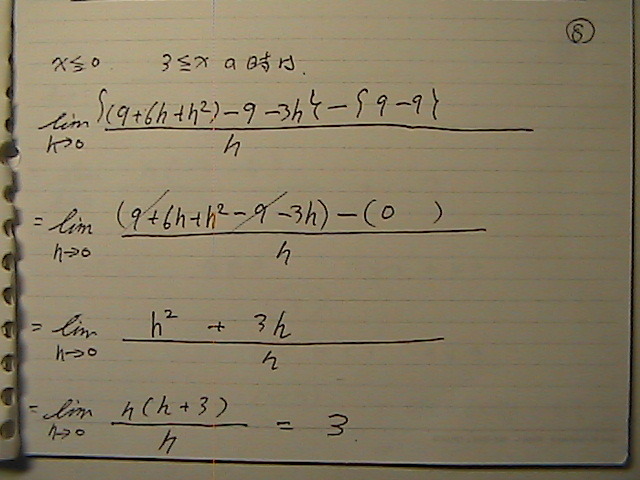 ⑧
x≦0 3≦x の時は、
lim h→0 {(9+6h+h²)-9-3h}-{9-9} / h
= lim h→0 (9+6h+h²-9-3h)-(0 ) / h
= lim h→0 h² + 3h / h
= lim h→0 h(h+3) / h = 3